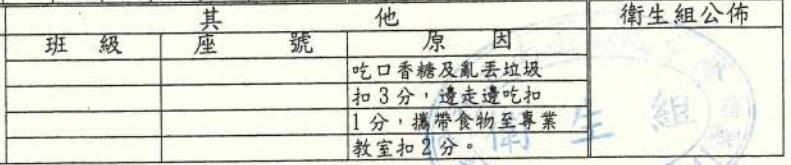 其他 衛生組公佈
班級 座號 原因
吃口香糖及亂丟垃圾
扣3分，邊走邊吃扣
1分，攜帶食物至專業
教室扣2分。
衛生組